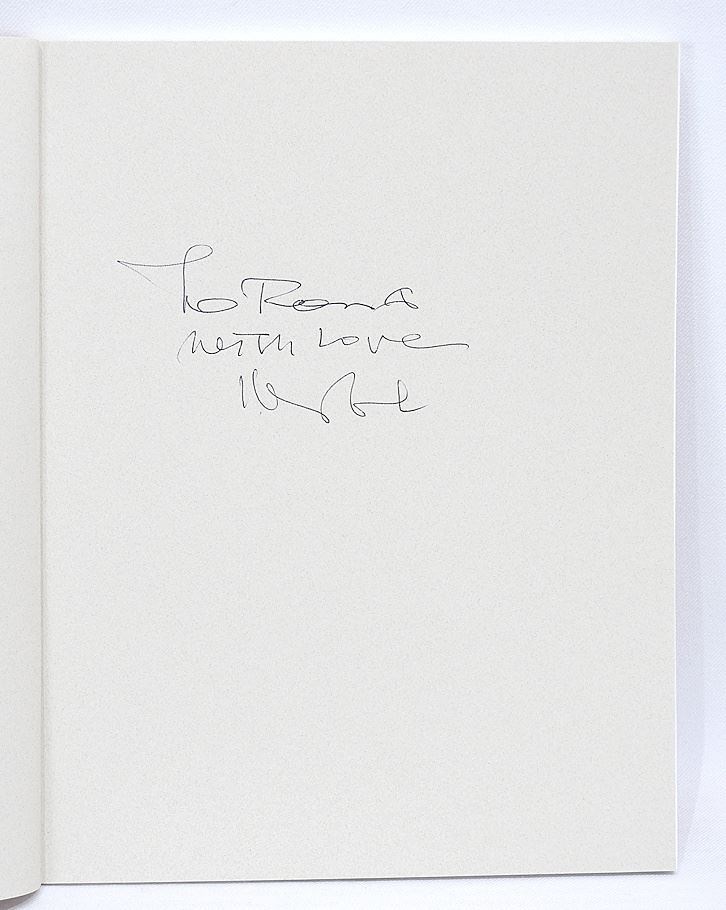 To Rona
with love